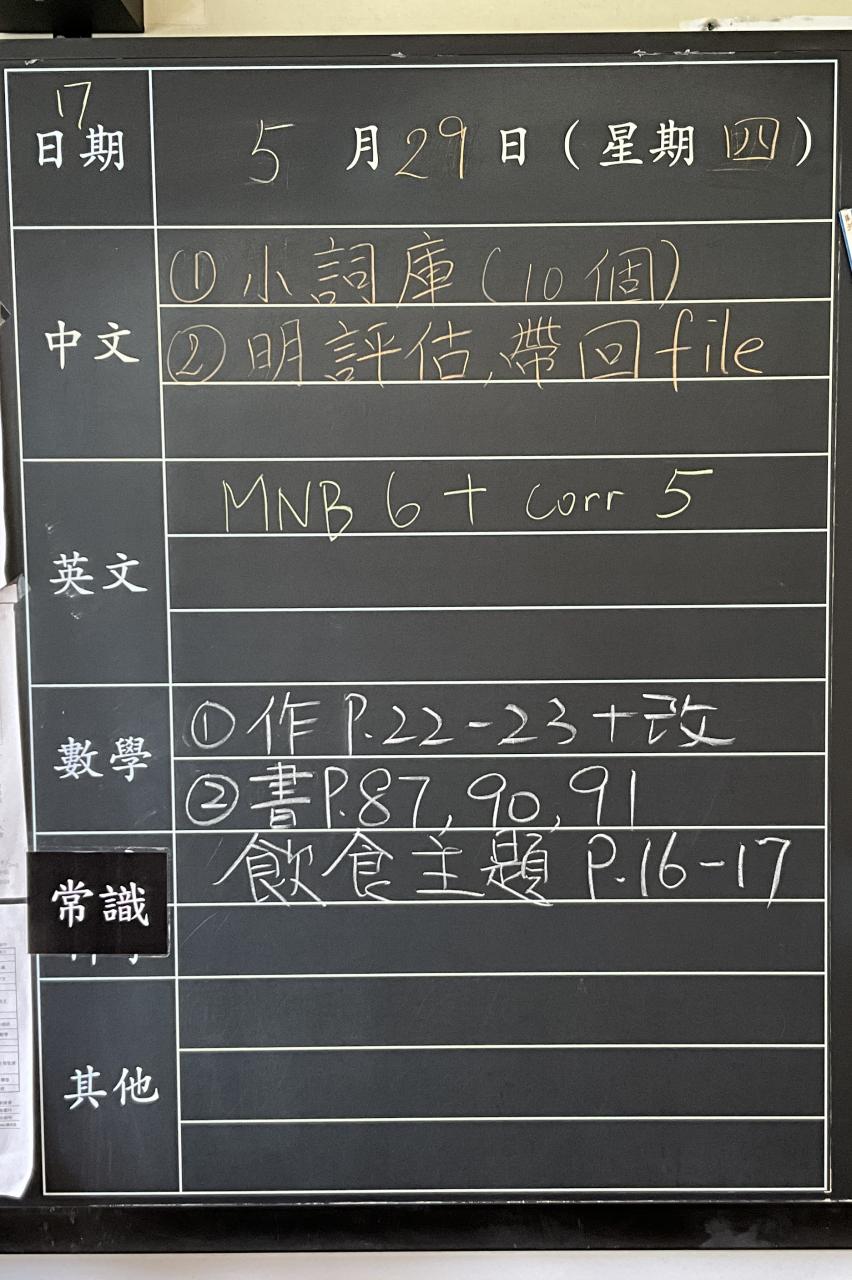 17
日期 5月29日(星期四)
中文
①小詞庫(10個)
②明評估,帶回file
英文
MNB 6 + corr 5
數學
①作P.22-23+改
②書P.87,90,91
常識
飲食主題 P.16-17
其他